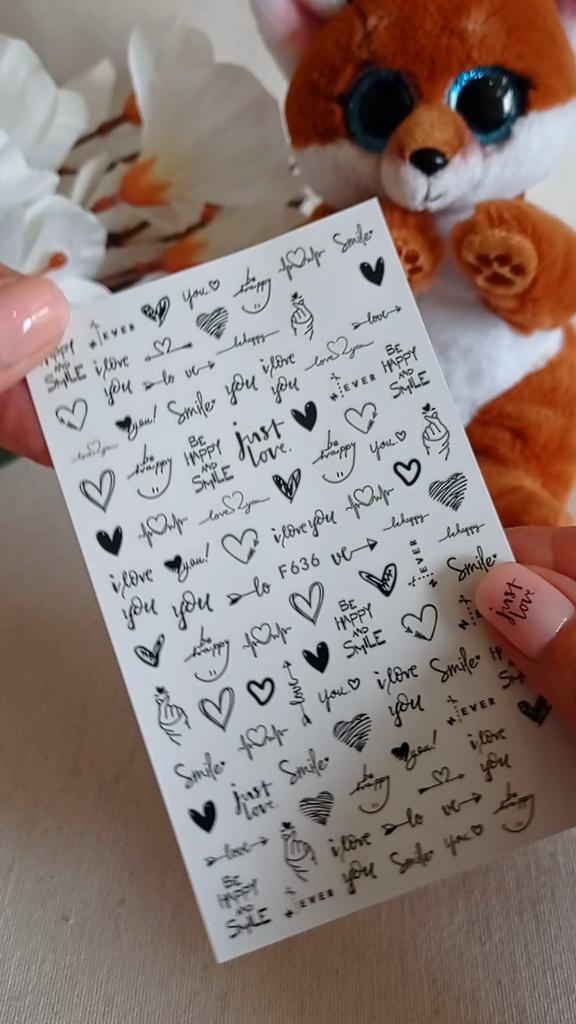 Smile
you
be happy
EVER
HAPPY AND SMILE
i love you
lo ve
behappy
love
you!
Smile
you
i love you
love you
NEVER
BE HAPPY AND SMILE
love you
be happy
BE HAPPY AND SMILE
just love.
be happy
you
love you
i love you
behappy
behappy
i love you
you!
you
lo
F636
ve
NEVER
Smile
just love.
be happy
BE HAPPY AND SMILE
you
i love you
Smile
NEVER
Smile
just love.
Smile
be happy
you!
i love you
love
i love you
lo ve
be happy
BE HAPPY AND SMILE
NEVER
you
Smile
you